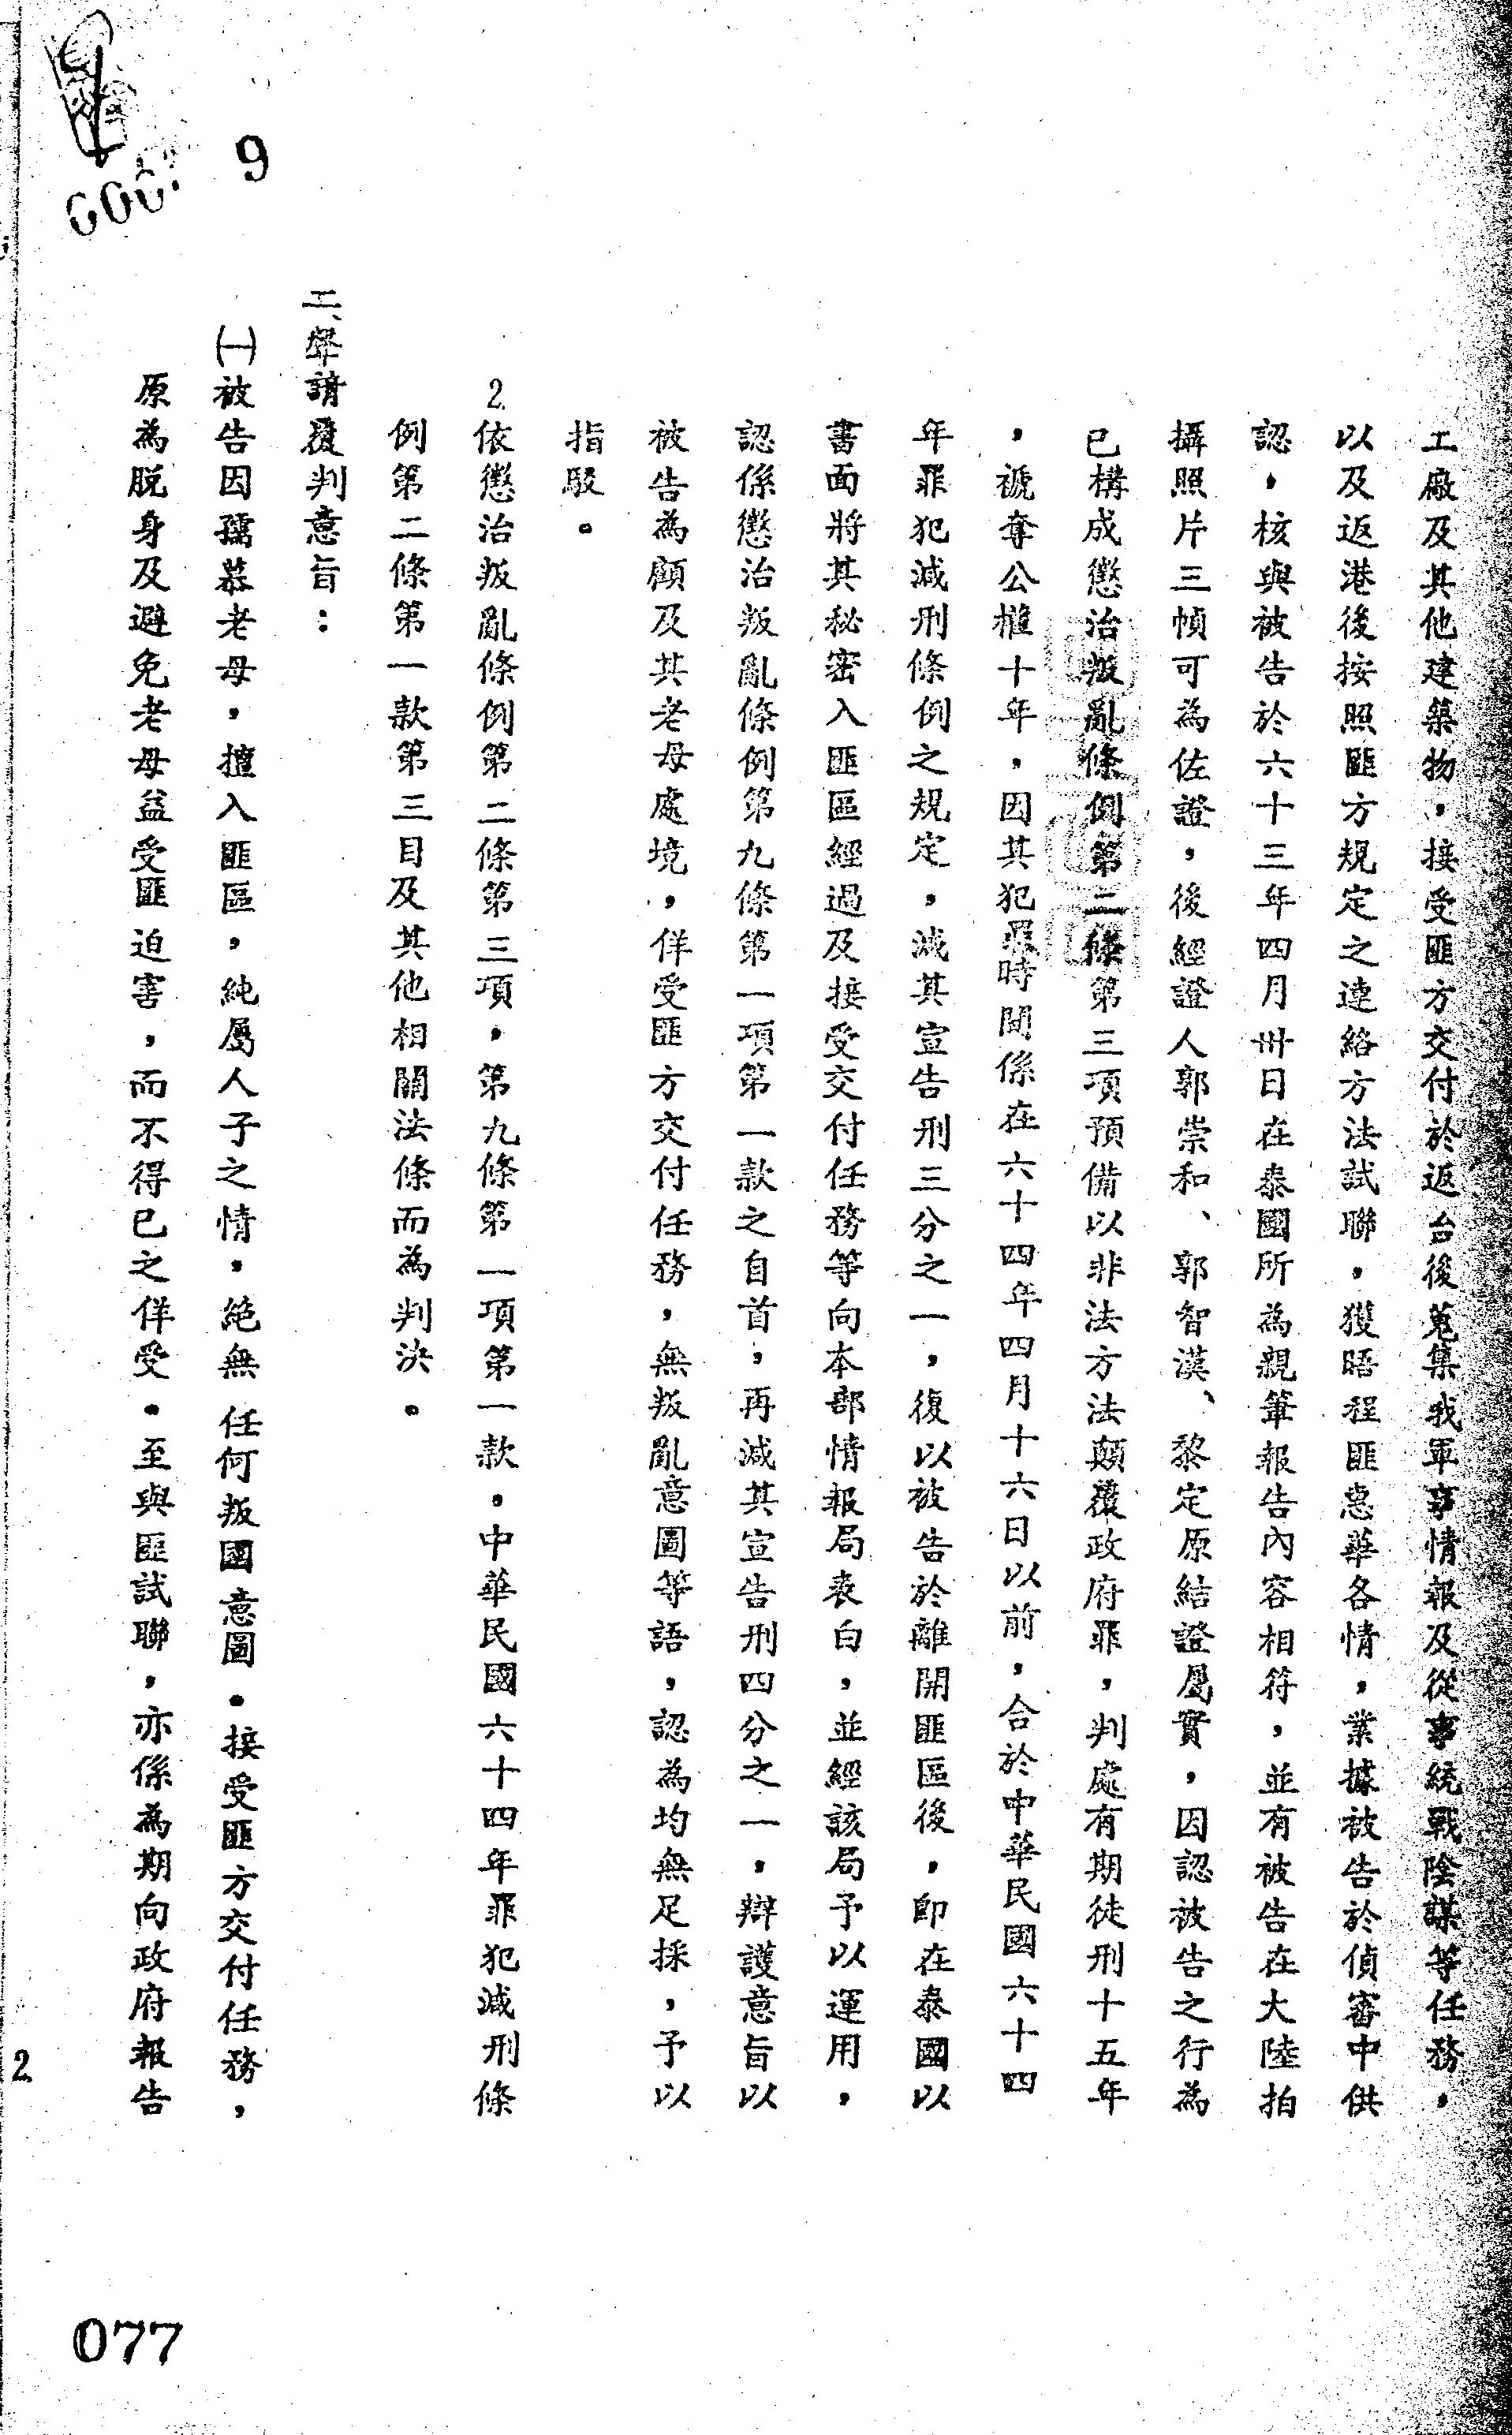 9
工廠及其他建築物，接受匪方交付於返台後蒐集我軍事情報及從事統戰陰謀等任務，
以及返港後按照匪方規定之連絡方法試聯，獲晤程匪惠華各情，業據被告於偵審中供
認，核與被告於六十三年四月卅日在泰國所為親筆報告內容相符，並有被告在大陸拍
攝照片三幀可為佐證，後經證人郭崇和、郭智漢、黎定原結證屬實，因認被告之行為
已構成懲治叛亂條例第二條第三項預備以非法方法顛覆政府罪，判處有期徒刑十五年
，褫奪公權十年，因其犯罪時間係在六十四年四月十六日以前，合於中華民國六十四
年罪犯減刑條例之規定，減其宣告刑三分之一，復以被告於離開匪區後，即在泰國以
書面將其秘密入匪區經過及接受交付任務等向本部情報局表白，並經該局予以運用，
認係懲治叛亂條例第九條第一項第一款之自首，再減其宣告刑四分之一，辯護意旨以
被告為顧及其老母處境，佯受匪方交付任務，無叛亂意圖等語，認為均無足採，予以
指駁。
2.依懲治叛亂條例第二條第三項，第九條第一項第一款，中華民國六十四年罪犯減刑條
例第二條第一款第三目及其他相關法條而為判決。
二、聲請覆判意旨：
㈠被告因孺慕老母，擅入匪區，純屬人子之情，絕無任何叛國意圖。接受匪方交付任務，
原為脫身及避免老母益受匪迫害，而不得已之佯受。至與匪試聯，亦係為期向政府報告
2
077